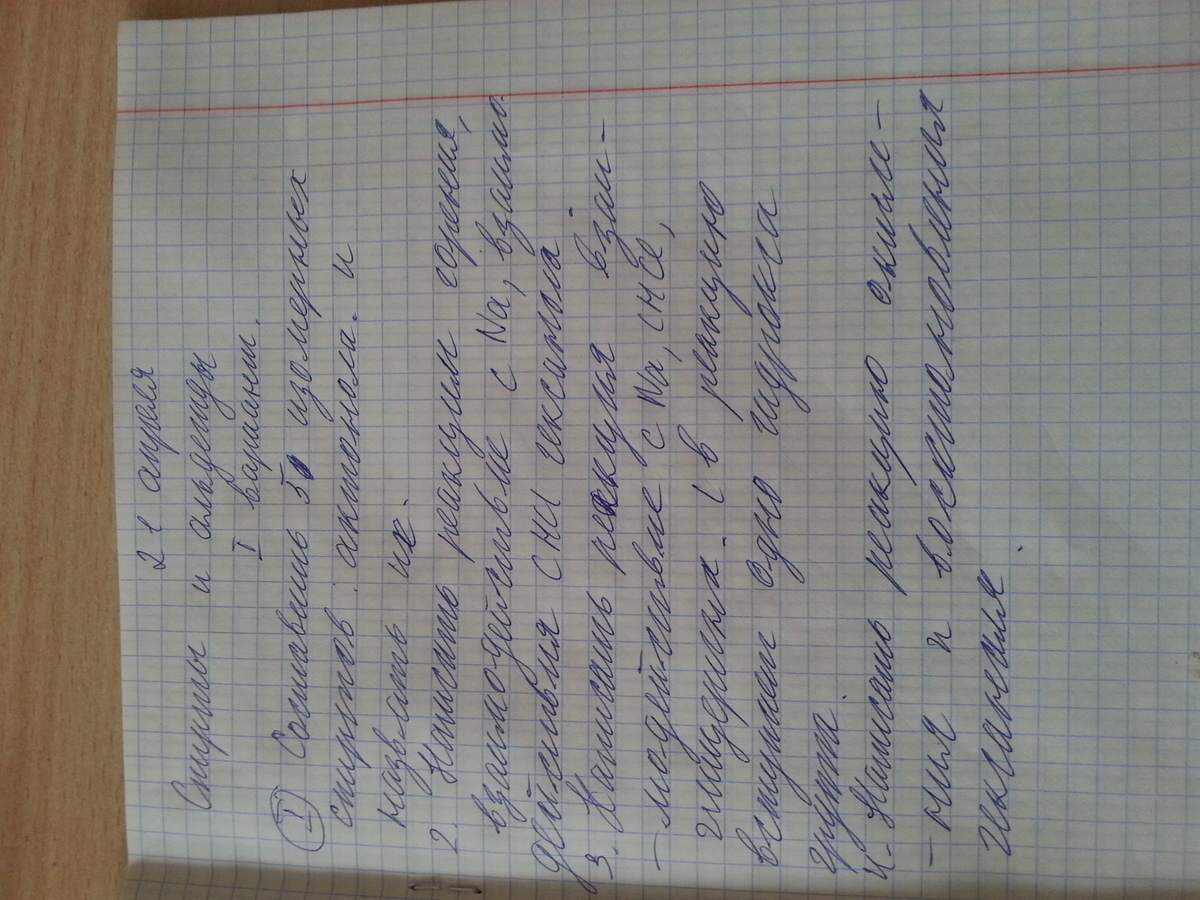 21 апреля
Спирты и альдегиды
I вариант.
① Составить 5 изомерных
спиртов октанола. и
назвать их.
2. Написать реакции горения,
взаимодействие с Na, взаимо-
действия с HCl гексанола
3. Написать реакция взаи-
-модействие с Na, с HCl,
глицерина. (в реакцию
вступает одна гидрокса
группа.
4. Написать реакцию окисле-
-ния и восстановления
гексаналя.